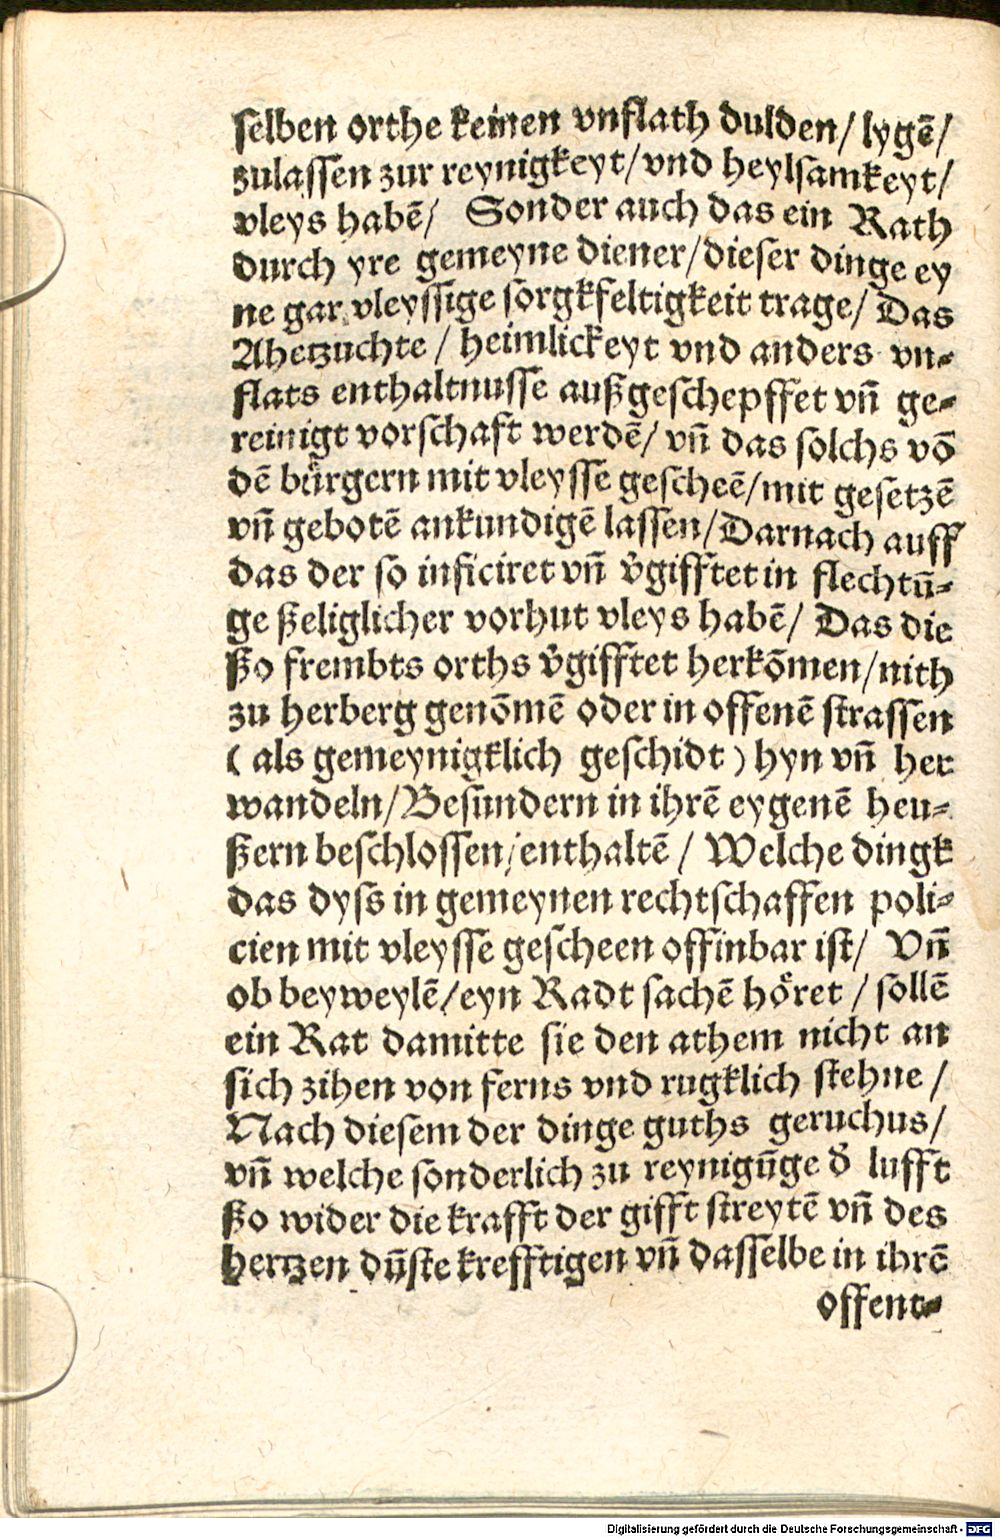 ſelben orthe keinen vnflath dulden/ lygē/
zulaſſen zur reynigkeyt/ vnd heylſamkeyt/
vleys habē/ Sonder auch das ein Rath
durch yre gemeyne diener/ dieſer dinge ey
ne gar vleyſſige ſorgkfeltigkeit trage/ Das
Ahetzuchte / heimlickeyt vnd anders vn⸗
flats enthaltnuſſe außgeſchepffet vñ ge⸗
reinigt vorſchaft werdē/ vñ das ſolchs vō
dē buͤrgern mit vleyſſe geſcheē/ mit geſetzē
vñ gebotē ankundigē laſſen/ Darnach auff
das der ſo inficiret vñ v̓gifftet in flechtū⸗
ge ßeliglicher vorhut vleys habē/ Das die
ßo frembts orths v̓gifftet herkōmen/ nith
zu herberg genōmē oder in offenē ſtraſſen
( als gemeynigklich geſchidt ) hyn vñ her
wandeln/ Beſundern in ihrē eygenē heu⸗
ßern beſchloſſen/ enthaltē / Welche dingk
das dyſs in gemeynen rechtſchaffen poli⸗
cien mit vleyſſe geſcheen offinbar iſt/ Vñ
ob beyweylē/ eyn Radt ſachē hoͤret / ſollē
ein Rat damitte ſie den athem nicht an
ſich zihen von ferns vnd rugklich ſtehne /
Nach dieſem der dinge guths geruchus/
vñ welche ſonderlich zu reynigūge d̓ lufft
ßo wider die krafft der gifft ſtreytē vñ des
hertzen dūſte krefftigen vñ daſſelbe in ihrē
offent⸗
Digitalisierung gefördert durch die Deutsche Forschungsgemeinschaft - DFG